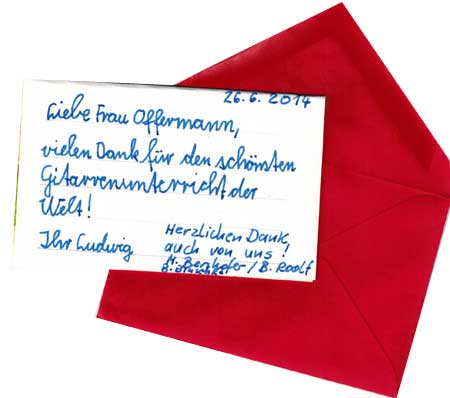 26.6.2014
Liebe Frau Offermann,
vielen Dank für den schönsten
Gitarrenunterricht der
Welt!
Ihr Ludwig
Herzlichen Dank,
auch von uns!
/ B. Roolf